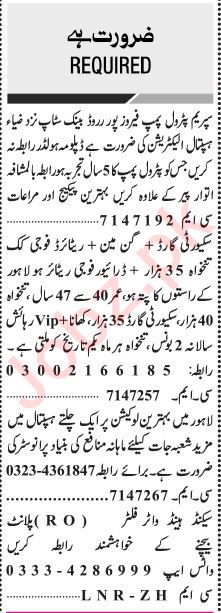 ضرورت ہے
REQUIRED
سپریم پٹرول پمپ فیروزپور روڈ بینک سٹاپ نزد ضیاء
ہسپتال الیکٹریشن کی ضرورت ہے ڈپلومہ ہولڈر رابطہ نہ
کریں جس کو پٹرول پمپ کا 5 سال تجربہ ہو رابطہ بالمشافہ
اتوار پیر کے علاوہ کریں بہترین پیکیج اور مراعات
سی ایم 7147192
سکیورٹی گارڈ + گن مین + ریٹائرڈ فوجی کک
تنخواہ 35 ہزار + ڈرائیور فوجی ریٹائر ہو لاہور
کے راستوں کا پتہ ہو، عمر 40 سے 47 سال، تنخواہ
40 ہزار، سکیورٹی گارڈ 35 ہزار، کھانا + Vip رہائش
سالانہ 2 بونس، تنخواہ ہر ماہ یکم تاریخ کو ملتی ہے۔
رابطہ: 03002166185
سی۔ایم۔ 7147257
لاہور میں بہترین لوکیشن پر ایک چلتے ہسپتال میں
مزید شعبہ جات کیلئے ماہانہ منافع کی بنیاد پر انوسٹر کی
ضرورت ہے۔ برائے رابطہ 0323-4361847
سی۔ایم۔ 7147267
سیکنڈ ہینڈ واٹر فلٹر (RO) پلانٹ
بیچنے کے خواہشمند رابطہ کریں
واٹس ایپ 0333-4286999
سی ایم LNR-ZH